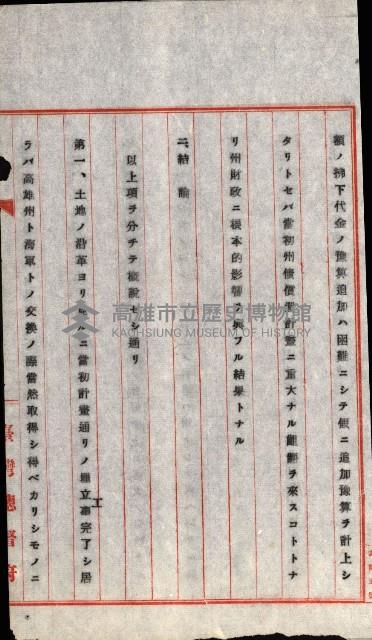 額ノ拂下代金ノ豫算追加ハ困難ニシテ假ニ追加豫算ヲ計上シ
タリトセバ當初州債償還計畫ニ重大ナル齟齬ヲ來スコトトナ
リ州財政ニ根本的影響ヲ與フル結果トナル
二、結論
以上項ヲ分チテ概說セシ通リ
第一、土地ノ沿革ヨリ見ルニ當初計畫通リノ埋立工事完了シ居
ラバ高雄州ト海軍トノ交換ノ際當然取得シ得ベカリシモノニ
臺灣總督府
高雄市立歷史博物館
KAOHSIUNG MUSEUM OF HISTORY